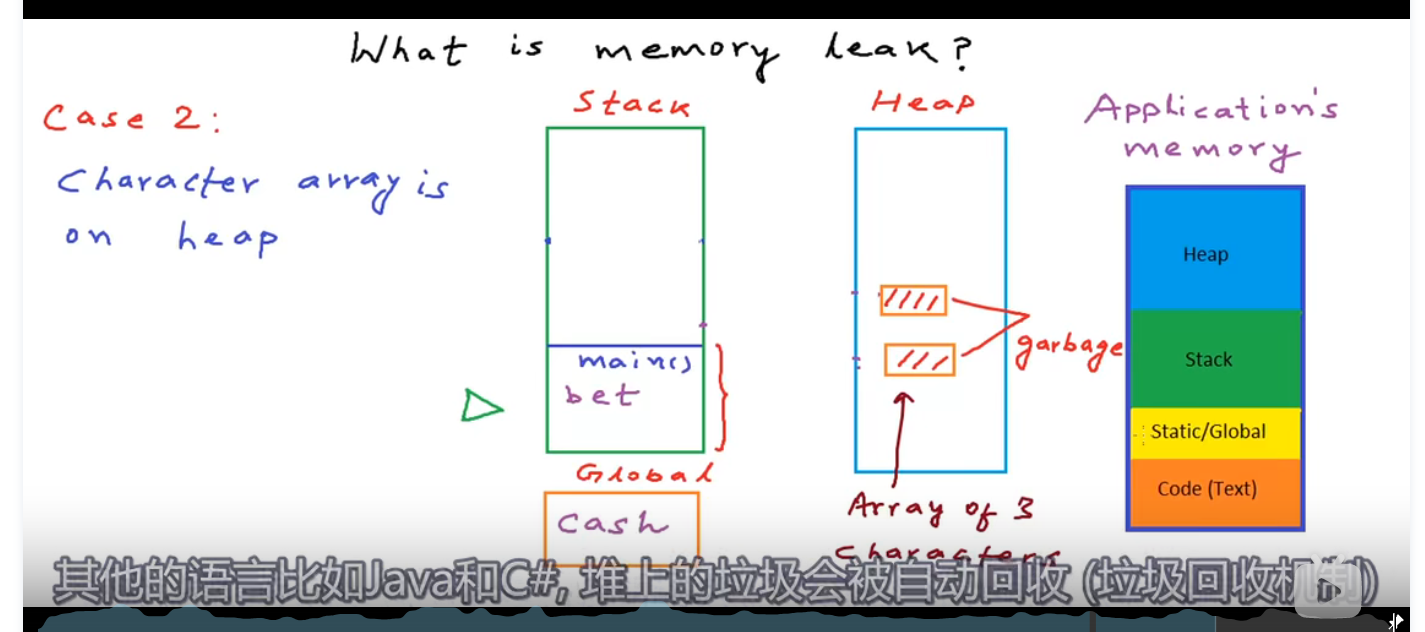 What is memory leak?
Case 2:
Character array is
on heap
Stack
main()
bet
Global
Cash
Heap
garbage
Array of 3
characters
Application's
memory
Heap
Stack
Static/Global
Code (Text)
其他的语言比如Java和C#, 堆上的垃圾会被自动回收 (垃圾回收机制)